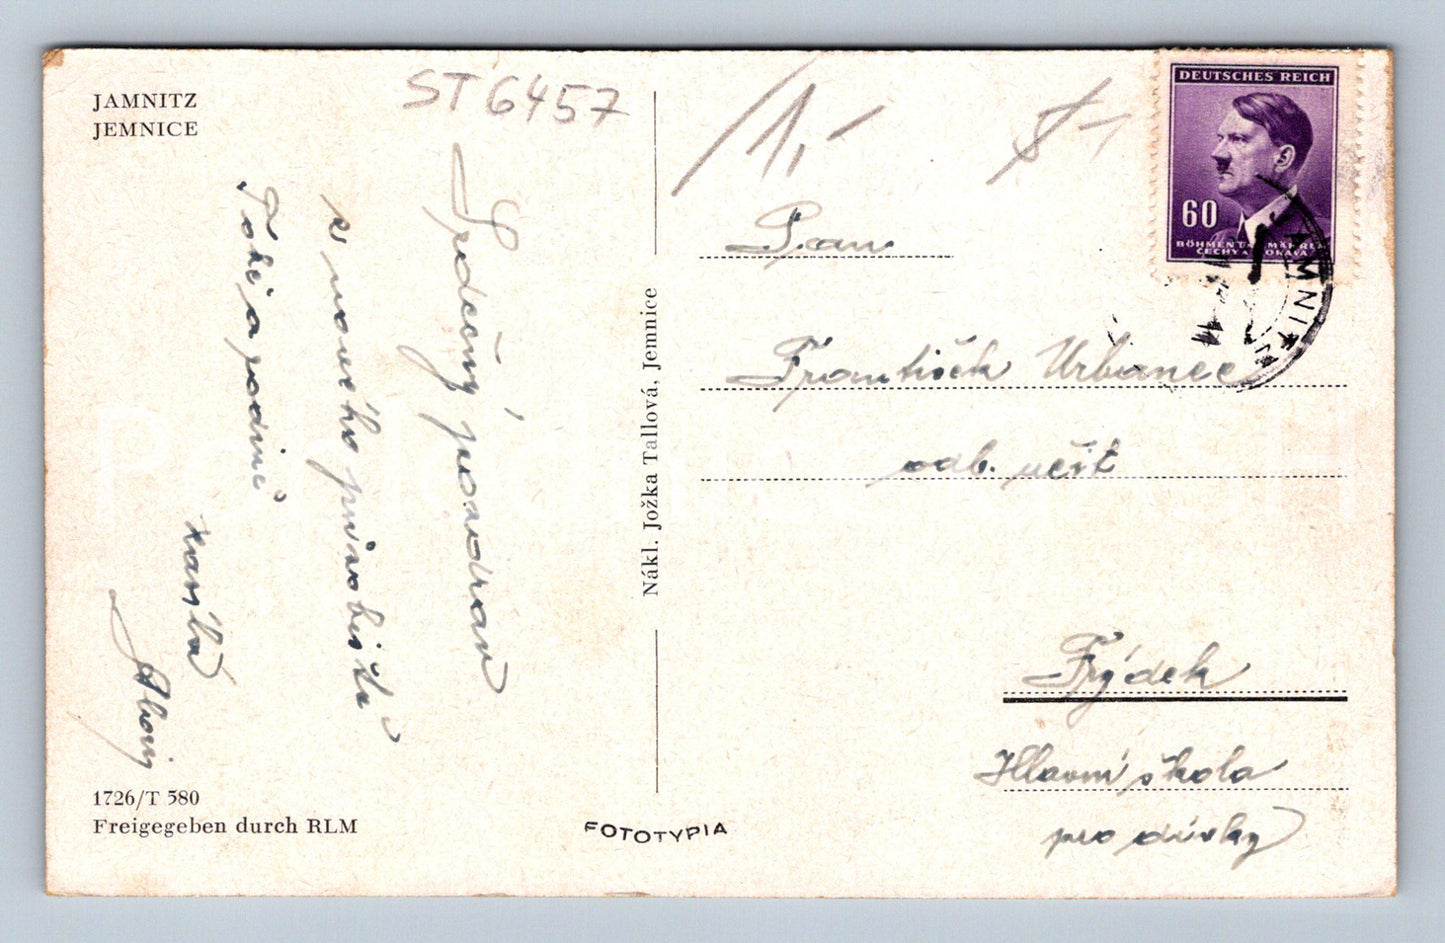 JAMNITZ
JEMNICE
ST 6457
Srdečný pozdrav
z nového působiště
Tobě a rodině
zasílá
1726/T 580
Freigegeben durch RLM
Nákl. Jožka Tallová, Jemnice
FOTOTYPIA
/1,-
DEUTSCHES REICH
60
BÖHMEN U. MÄHREN
ČECHY A MORAVA
JAMNITZ
Pan
František Urbanec
odb. učit
Frýdek
Hlavní škola
pro dívky